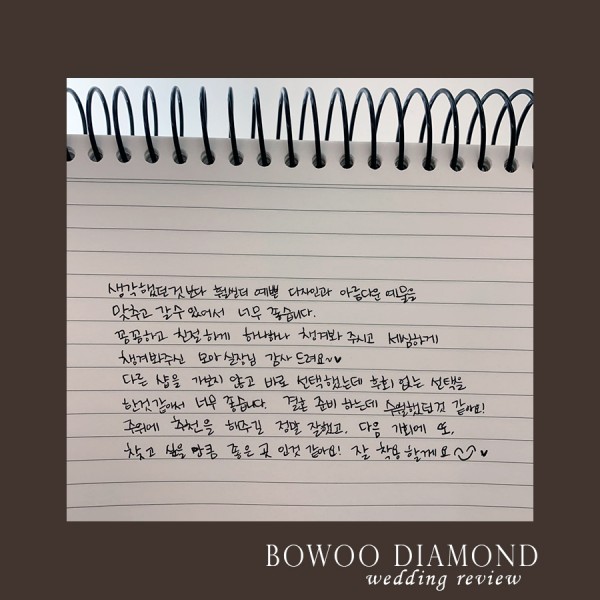 생각했던것보다 훨씬더 예쁜 디자인과 아름다운 예물을
맞추고 갈수있어서 너무 좋습니다.
꼼꼼하고 친절하게 하나하나 챙겨봐 주시고 세심하게
챙겨봐주신 모아실장님 감사 드려요~♥
다른 샵을 가보지 않고 바로 선택했는데 후회 없는 선택을
한것같아서 너무 좋습니다. 결혼 준비 하는데 수월했던것 같아요!
주위에 추천을 해주길 정말 잘했고, 다음 기회에 또,
찾고 싶을 만큼 좋은 곳 인것 같아요! 잘 착용할게요 ♥
BOWOO DIAMOND
wedding review